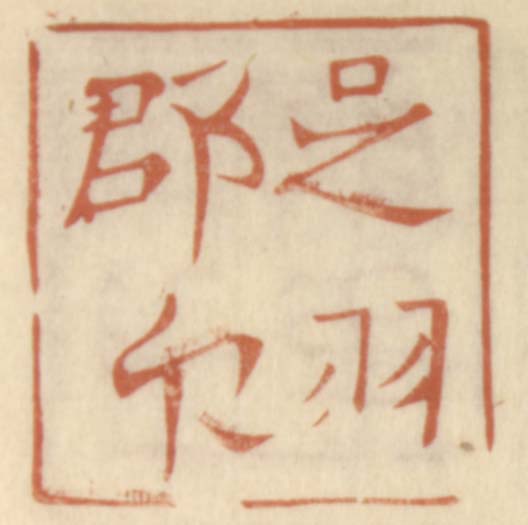 足羽
郡印